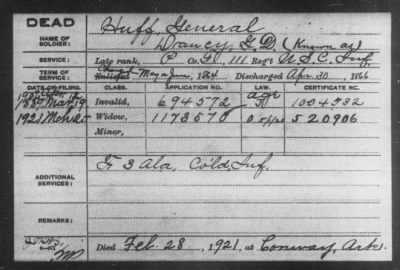 DEAD
NAME OF SOLDIER: Huff, General
Drancy, G.D. (Known as)
SERVICE: Late rank, P Co. G, 111 Reg't U.S.C. Inf.
TERM OF SERVICE: Enlisted May or June, 1864 Discharged Apr. 30, 1866
DATE OF FILING. CLASS. APPLICATION NO. LAW. CERTIFICATE NO.
Invalid, 694572 1004532
1921 Mch 25 Widow, 1173570 520906
Minor,
ADDITIONAL SERVICES: F 3 Ala, Col'd, Inf.
REMARKS:
Died Feb. 28, 1921, at Conway, Ark.